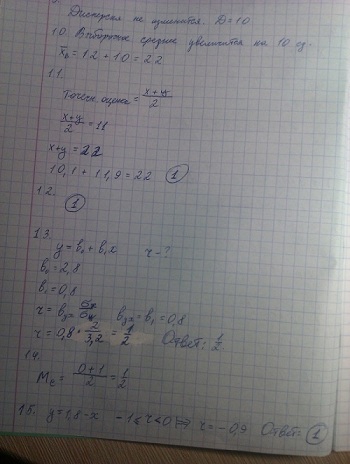 9.
Дисперсия не изменится. D=10
10. Выборочн. среднее увеличится на 10 ед.
x̄в = 12 + 10 = 22
11.
точечн. оценка = (x+y)/2
(x+y)/2 = 11
x+y = 22
10,1 + 11,9 = 22 ①
12.
①
13.
y = b₀ + b₁x r - ?
b₀ = 2,8
b₁ = 0,8
r = b₁ = b₁ₓ = b₁ = 0,8
r = 0,8 · 2/3,2 = 1/2 Ответ: 1/2
14.
= (0+1)/2 = 1/2
15. y = 1,8 - x -1≤r<0 ⇒ r = -0,9 Ответ: ①